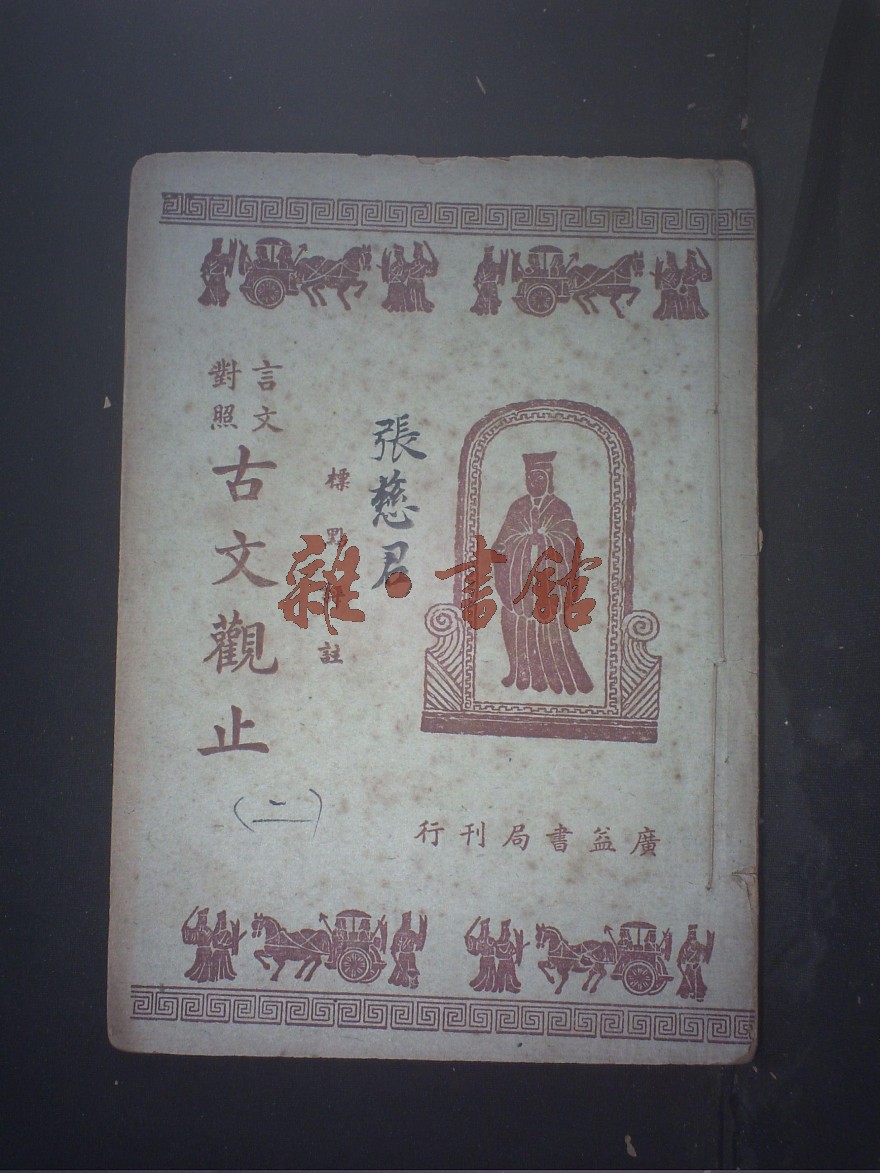 言文
對照
古文觀止
(二)
標點 註
張慈君
雜·書館
廣益書局刊行